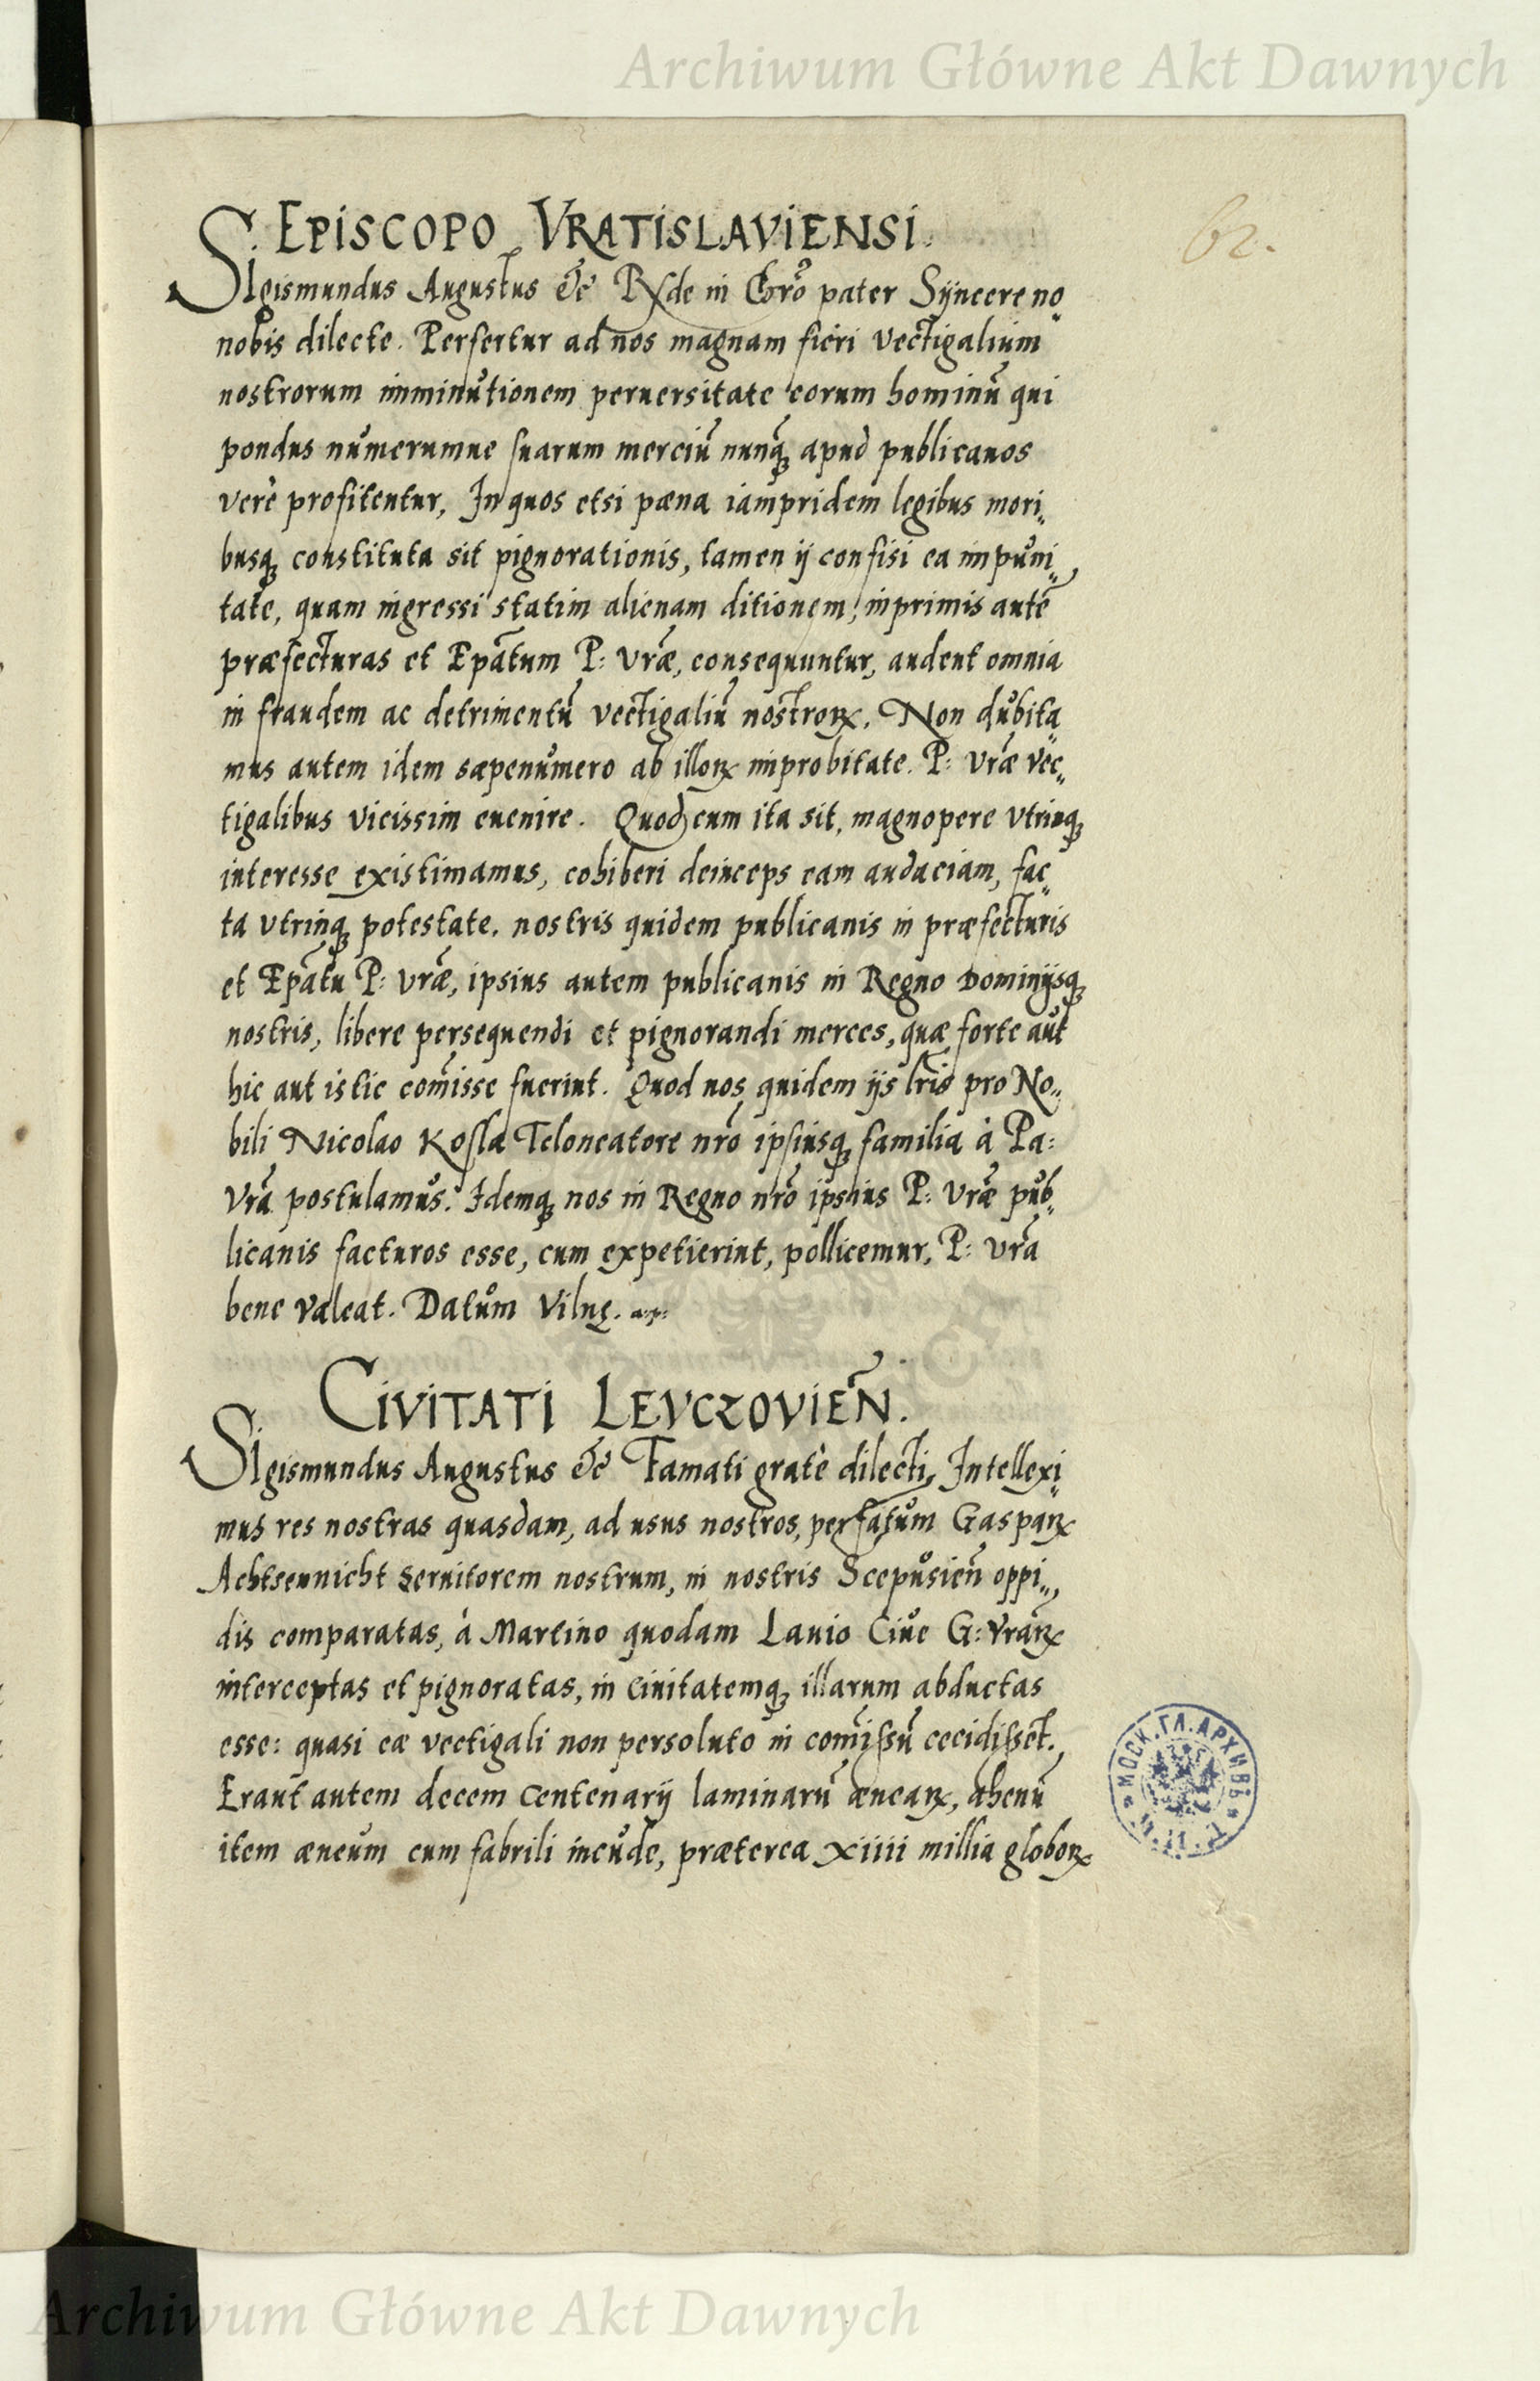 Archiwum Główne Akt Dawnych
62.
EPISCOPO VRATISLAVIENSI.
Sigismundus Augustus &c̃ Rx̃de in Chrõ pater Syncere no„
nobis dilecte. Perfertur ad nos magnam fieri vectigalium
nostrorum imminutionem peruersitate eorum hominũ qui
pondus numerumue suarum merciũ nunq̃ʒ apud publicanos
verè profitentur, In quos etsi pæna iampridem legibus mori„
busqʒ constituta sit pignorationis, tamen ij confisi ea impuni„
tate, quam ingressi statim alienam ditionem, inprimis autẽ
præfecturas et Ep̃atum P: vr̃æ, consequuntur, audent omnia
in fraudem ac detrimentũ vectigaliũ nostroꝝ. Non dubita„
mus autem idem sæpenumero ab illoꝝ improbitate. P: vr̃æ vec„
tigalibus vicissim euenire. Quod cum ita sit, magnopere vtrinqʒ
interesse existimamus, cohiberi deinceps eam audaciam, fac„
ta vtrinqʒ potestate, nostris quidem publicanis in præfecturis
et Ep̃atu P: vr̃æ, ipsius autem publicanis in Regno Dominijsqʒ
nostris, libere persequendi et pignorandi merces, quæ forte aut
hic aut istic com̃isse fuerint. Quod nos quidem ijs l̃ris pro No„
bili Nicolao Kosla Teloneatore nr̃o ipsiusqʒ familia à Pa:
Vr̃a postulamus. Idemqʒ nos in Regno nr̃o ipsius P: Vr̃æ pub„
licanis facturos esse, cum expetierint, pollicemur. P: vr̃a
bene valeat. Datum Vilnę.
CIVITATI LEVCZOVIEÑ.
Sigismundus Augustus &c̃ Famati gratè dilecti, Intellexi„
mus res nostras quasdam, ad usus nostros, per fatum Gasparꝝ
Achtsennicht seruitorem nostrum, in nostris Scepusieñ oppi„
dis comparatas, à Martino quodam Lauio Ciue G: Vr̃aꝝ
interceptas et pignoratas, in ciuitatemqʒ illarum abductas
esse: quasi eæ vectigali non persoluto in com̃issũ cecidissẽt.
Erant autem decem Centenarij laminarũ æneaꝝ, ahenũ
item æneum cum fabrili incude, præterea xiiii millia globoꝝ
МОСК. ГЛ. АРХИВЪ
Archiwum Główne Akt Dawnych